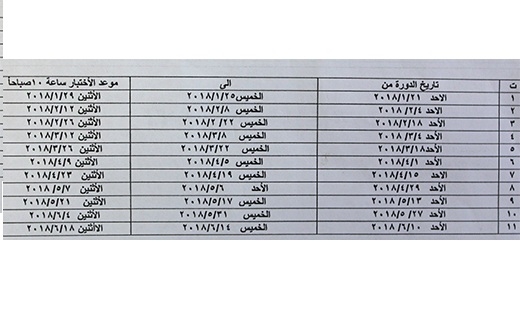 ت تاريخ الدورة من الى موعد الأختبار ساعة ١٠صباحاً
١ الاحد ٢٠١٨/١/٢١ الخميس٢٠١٨/١/٢٥ الأثنين ٢٠١٨/١/٢٩
٢ الاحد ٢٠١٨/٢/٤ الخميس ٢٠١٨/٢/٨ الأثنين ٢٠١٨/٢/١٢
٣ الأحد ٢٠١٨/٢/١٨ الخميس ٢٠١٨/٢/٢٢ الأثنين ٢٠١٨/٢/٢٦
٤ الأحد ٢٠١٨/٣/٤ الخميس ٢٠١٨/٣/٨ الأثنين ٢٠١٨/٣/١٢
٥ الأحد٢٠١٨/٣/١٨ الخميس ٢٠١٨/٣/٢٢ الأثنين ٢٠١٨/٣/٢٦
٦ الأحد ٢٠١٨/٤/١ الخميس ٢٠١٨/٤/٥ الأثنين ٢٠١٨/٤/٩
٧ الأحد ٢٠١٨/٤/١٥ الخميس ٢٠١٨/٤/١٩ الأثنين ٢٠١٨/٤/٢٣
٨ الأحد ٢٠١٨/٤/٢٩ الأحد ٢٠١٨/٥/٦ الأثنين ٢٠١٨/٥/٧
٩ الأحد ٢٠١٨/٥/١٣ الخميس ٢٠١٨/٥/١٧ الأثنين ٢٠١٨/٥/٢١
١٠ الأحد ٢٠١٨/٥/٢٧ الخميس ٢٠١٨/٥/٣١ الأثنين ٢٠١٨/٦/٤
١١ الأحد ٢٠١٨/٦/١٠ الخميس ٢٠١٨/٦/١٤ الأثنين ٢٠١٨/٦/١٨